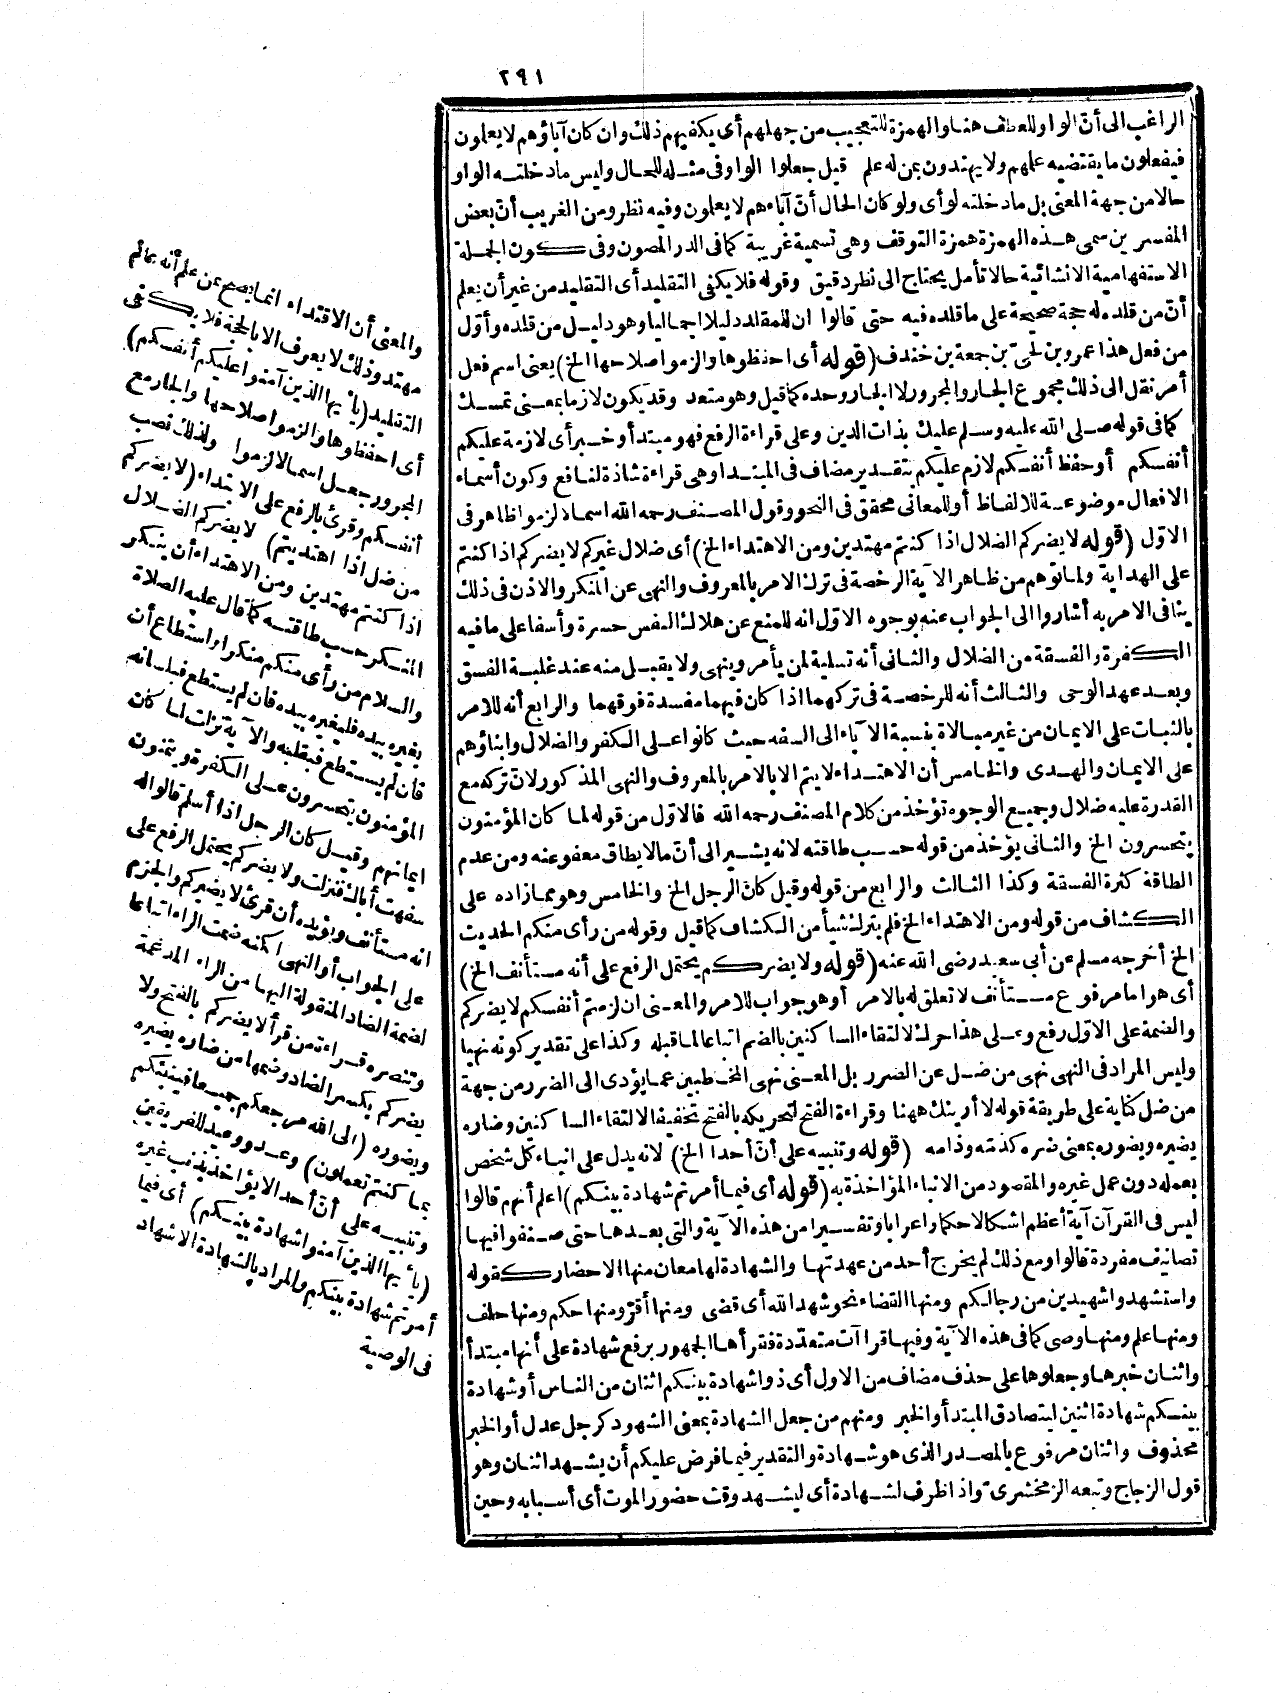 ٢٩١
الراغب الى أنّ الواو للعطف هنا والهمزة للتعجيب من جهلهم أى يكفيهم ذلك وان كان آباؤهم لا يعلمون
فيفعلون ما يقتضيه علمهم ولا يهتدون بمن له علم قيل جعلوا الواو فى مثله للحال وليس ما دخلته الواو
حالا من جهة المعنى بل ما دخلته لو أى ولو كان الحال أنّ آباءهم لا يعلمون وفيه نظر ومن الغريب أنّ بعض
المفسرين سمى هذه الهمزة همزة التوقف وهى تسمية غريبة كما فى الدر المصون وفى كون الجملة
الاستفهامية الانشائية حالا تأمل يحتاج الى نظر دقيق وقوله فلا يكفى التقليد أى التقليد من غير أن يعلم
أنّ من قلده له حجة صحيحة على ما قلده فيه حتى قالوا ان للمقلد دليلا اجماليا وهو دليل من قلده وأوّل
من فعل هذا عمرو بن لحىّ بن جمعة بن خندف (قوله أى احفظوها والزموا صلاحها الخ) يعنى اسم فعل
أمر نقل الى ذلك مجموع الجار والمجرور لا الجار وحده كما قيل وهو متعد وقد يكون لازما بمعنى تمسك
كما فى قوله صلى الله عليه وسلم عليك بذات الدين وعلى قراءة الرفع فهو مبتدأ وخبر أى لازمة عليكم
أنفسكم أو حفظ أنفسكم لازم عليكم بتقدير مضاف فى المبتدا وهى قراءة شاذة لنافع وكون أسماء
الافعال موضوعة للالفاظ أو للمعانى محقق فى النحو وقول المصنف رحمه الله اسما لالزموا ظاهر فى
الاوّل (قوله لا يضركم الضلال اذا كنتم مهتدين ومن الاهتداء الخ) أى ضلال غيركم لا يضركم اذا كنتم
على الهداية ولما توهم من ظاهر الآية الرخصة فى ترك الامر بالمعروف والنهى عن المنكر والاذن فى ذلك
ينافى الامر به أشاروا الى الجواب عنه بوجوه الاوّل انه للمنع عن هلاك النفس حسرة وأسفا على ما فيه
الكفرة والفسقة من الضلال والثانى أنه تسلية لمن يأمر وينهى ولا يقبل منه عند غلبة الفسق
وبعد عهد الوحى والثالث أنه للرخصة فى تركهما اذا كان فيهما مفسدة فوقهما والرابع أنه للامر
بالثبات على الايمان من غير مبالاة بنسبة الآباء الى السفه حيث كانوا على الكفر والضلال وابناؤهم
على الايمان والهدى والخامس أن الاهتداء لا يتم الا بالامر بالمعروف والنهى المذكور لانّ تركه مع
القدرة عليه ضلال وجميع الوجوه تؤخذ من كلام المصنف رحمه الله فالاوّل من قوله لما كان المؤمنون
يتحسرون الخ والثانى يؤخذ من قوله حسب طاقته لانه يشير الى أنّ ما لا يطاق معفو عنه ومن عدم
الطاقة كثرة الفسقة وكذا الثالث والرابع من قوله وقيل كان الرجل الخ والخامس وهو مما زاده على
الكشاف من قوله ومن الاهتداء الخ فلم يترك شيأ من الكشاف كما قيل وقوله من رأى منكم الحديث
الخ أخرجه مسلم عن أبى سعيد رضى الله عنه (قوله ولا يضركم يحتمل الرفع على أنه مستأنف الخ)
أى هو اما مرفوع مستأنف لا تعلق له بالامر أو هو جواب للامر والمعنى ان لزمتم أنفسكم لا يضركم
والضمة على الاوّل رفع وعلى هذا حرك لالتقاء الساكنين بالضم اتباعا لما قبله وكذا على تقدير كونه نهيا
وليس المراد فى النهى نهى من ضل عن الضرر بل المعنى نهى المخاطبين عما يؤدى الى الضرر من جهة
من ضل كناية على طريقة قوله لا أرينك ههنا وقراءة الفتح لتحريكه بالفتح تخفيفا لالتقاء الساكنين وضاره
يضيره ويضوره بمعنى ضره كذمته وذامه (قوله وتنبيه على أنّ أحدا الخ) لانه يدل على انباء كل شخص
بعمله دون عمل غيره والمقصود من الانباء المؤاخذة به (قوله أى فيما أمرتم شهادة بينكم) اعلم أنهم قالوا
ليس فى القرآن آية أعظم اشكالا حكما واعرابا وتفسيرا من هذه الآية والتى بعدها حتى صنفوا فيها
تصانيف مفردة قالوا ومع ذلك لم يخرج أحد من عهدتها والشهادة لها معان منها الاحضار كقوله
واستشهدوا شهيدين من رجالكم ومنها القضاء نحو شهد الله أى قضى ومنها أقرّ ومنها حكم ومنها حلف
ومنها علم ومنها وصى كما فى هذه الآية وفيها قراآت متعدّدة فقرأها الجمهور برفع شهادة على أنها مبتدأ
واثنان خبرها وجعلوها على حذف مضاف من الاول أى ذوا شهادة بينكم اثنان من الناس أو شهادة
بينكم شهادة اثنين ليتصادق المبتدأ والخبر ومنهم من جعل الشهادة بمعنى الشهود كرجل عدل أو الخبر
محذوف واثنان مرفوع بالمصدر الذى هو شهادة والتقدير فيما فرض عليكم أن يشهد اثنان وهو
قول الزجاج وتبعه الزمخشرى واذا ظرف لشهادة أى ليشهد وقت حضور الموت أى أسبابه وحين
والمعنى أن الاقتداء انما يصح عن علم أنه عالم
مهتد وذلك لا يعرف الا بالحجة فلا يكفى
التقليد (يا أيها الذين آمنوا عليكم أنفسكم)
أى احفظوها والزموا صلاحها والجار مع
المجرور جعل اسما لالزموا ولذلك نصب
أنفسكم وقرئ بالرفع على الابتداء (لا يضركم
من ضل اذا اهتديتم) لا يضركم الضلال
اذا كنتم مهتدين ومن الاهتداء أن ينكر
المنكر حسب طاقته كما قال عليه الصلاة
والسلام من رأى منكم منكرا واستطاع أن
يغيره بيده فليغيره بيده فان لم يستطع فبلسانه
فان لم يستطع فبقلبه والآية نزلت لما كان
المؤمنون يتحسرون على الكفرة ويتمنون
ايمانهم وقيل كان الرجل اذا أسلم قالوا له
سفهت أباك فنزلت ولا يضركم يحتمل الرفع على
انه مستأنف ويؤيده أن قرئ لا يضيركم والجزم
على الجواب أو النهى لكنه ضمت الراء اتباعا
لضمة الضاد المنقولة اليها من الراء المدغمة
وتنصره قراءة من قرأ لا يضركم بالفتح ولا
يضركم بكسر الضاد وضمها من ضاره يضيره
ويضوره (الى الله مرجعكم جميعا فينبئكم
بما كنتم تعملون) وعد ووعيد للفريقين
وتنبيه على أنّ أحدا لا يؤاخذ بذنب غيره
(يا أيها الذين آمنوا شهادة بينكم) أى فيما
أمرتم شهادة بينكم والمراد بالشهادة الاشهاد
فى الوصية